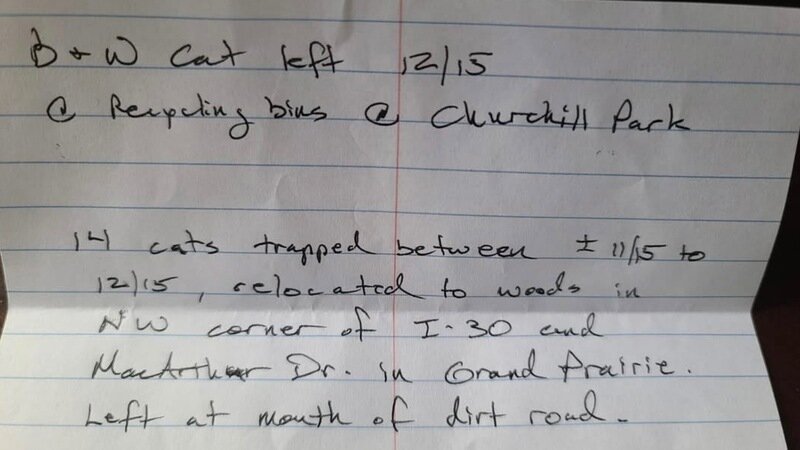 B + W Cat left 12/15
@ Recycling bins @ Churchill Park
14 cats trapped between ± 11/15 to
12/15, relocated to woods in
NW corner of I-30 and
MacArthur Dr. in Grand Prairie.
Left at mouth of dirt road.